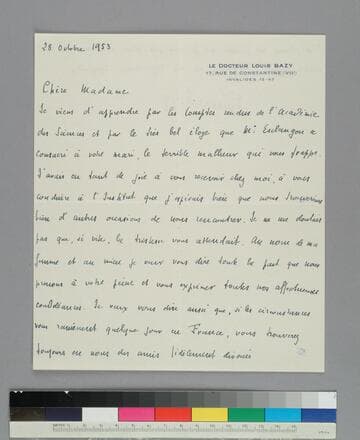 28 Octobre 1953
LE DOCTEUR LOUIS BAZY
17, RUE DE CONSTANTINE (VII)
INVALIDES
Chère Madame
Je viens d'apprendre par les Comptes rendus de l'Académie
des Sciences et par le très bel éloge que Mr Erlanger a
consacré à votre mari, le terrible malheur qui vous frappe.
J'avais eu tant de joie à vous recevoir chez moi, à vous
conduire à l'Institut que j'espérais bien que nous trouverions
bien d'autres occasions de nous rencontrer. Je ne me doutais
pas que, si vite, la tristesse vous attendait. Au nom de ma
femme et au mien je veux vous dire toute la part que nous
prenons à votre peine et vous exprimer toutes nos affectueuses
condoléances. Je veux vous dire aussi que, si les circonstances
vous ramènent quelque jour en France, vous trouverez
toujours en nous des amis fidèlement dévoués